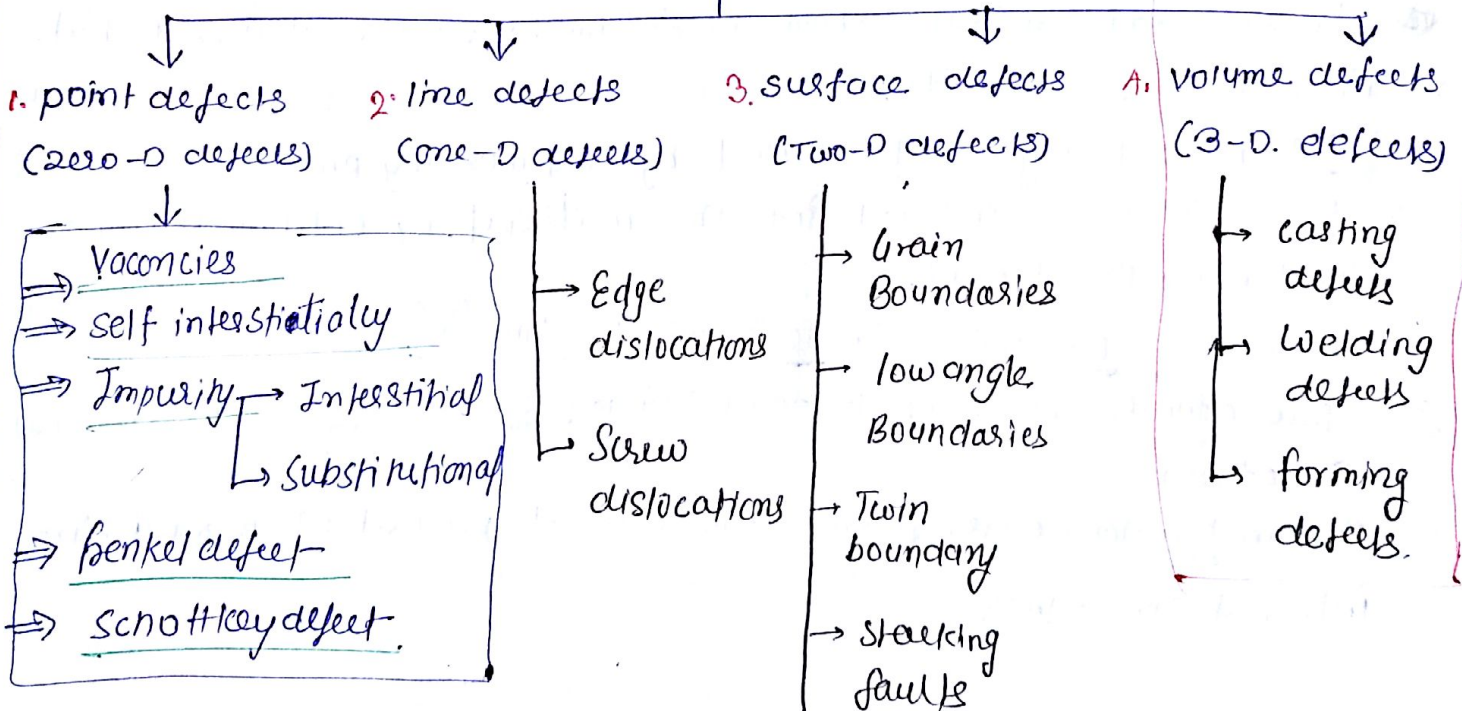 1. point defects
(zero-D defects)
⇒ Vacancies
⇒ self interstitially
⇒ Impurity → Interstitial
↳ substitutional
⇒ frenkel defect
⇒ schottkey defect.
2. line defects
(one-D defects)
→ Edge
dislocations
→ Screw
dislocations
3. surface defects
(Two-D defects)
→ Grain
Boundaries
→ low angle
Boundaries
→ Twin
boundary
→ stacking
faults
4. volume defects
(3-D. defects)
→ casting
defects
→ welding
defects
→ forming
defects.